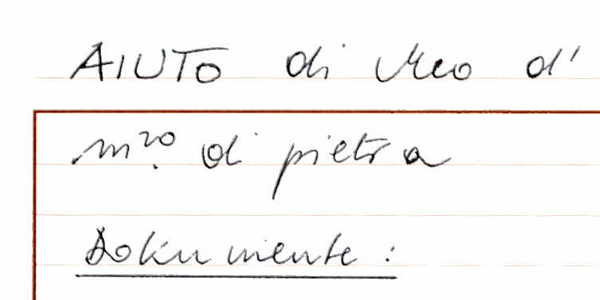 AIUTO di Meo d'
m.ro di pietra
Dokumente: